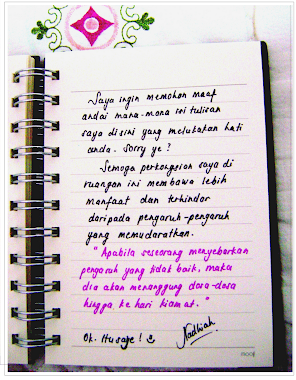 Saya ingin memohon maaf
andai mana-mana isi tulisan
saya disini yang melukakan hati
anda. Sorry ye?
Semoga perkongsian saya di
ruangan ini membawa lebih
manfaat dan terhindar
daripada pengaruh-pengaruh
yang memudaratkan.
"Apabila seseorang menyebarkan
pengaruh yang tidak baik, maka
dia akan menanggung dosa-dosa
hingga ke hari kiamat."
Ok. Itu saje!
Nadhiah